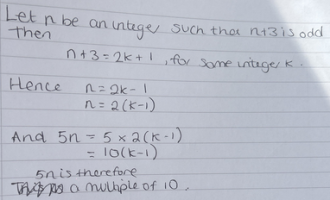 Let n be an integer such that n+3 is odd
Then
n+3=2k+1, for some integer k.
Hence n=2k-1
n=2(k-1)
And 5n = 5 × 2(k-1)
= 10(k-1)
5n is therefore
a multiple of 10.